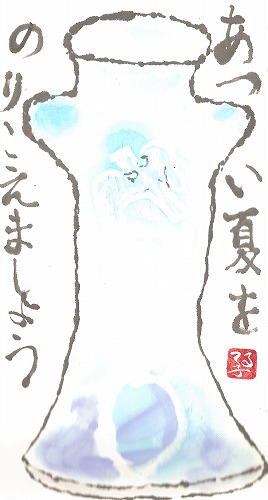 あつい夏を
のりこえましょう